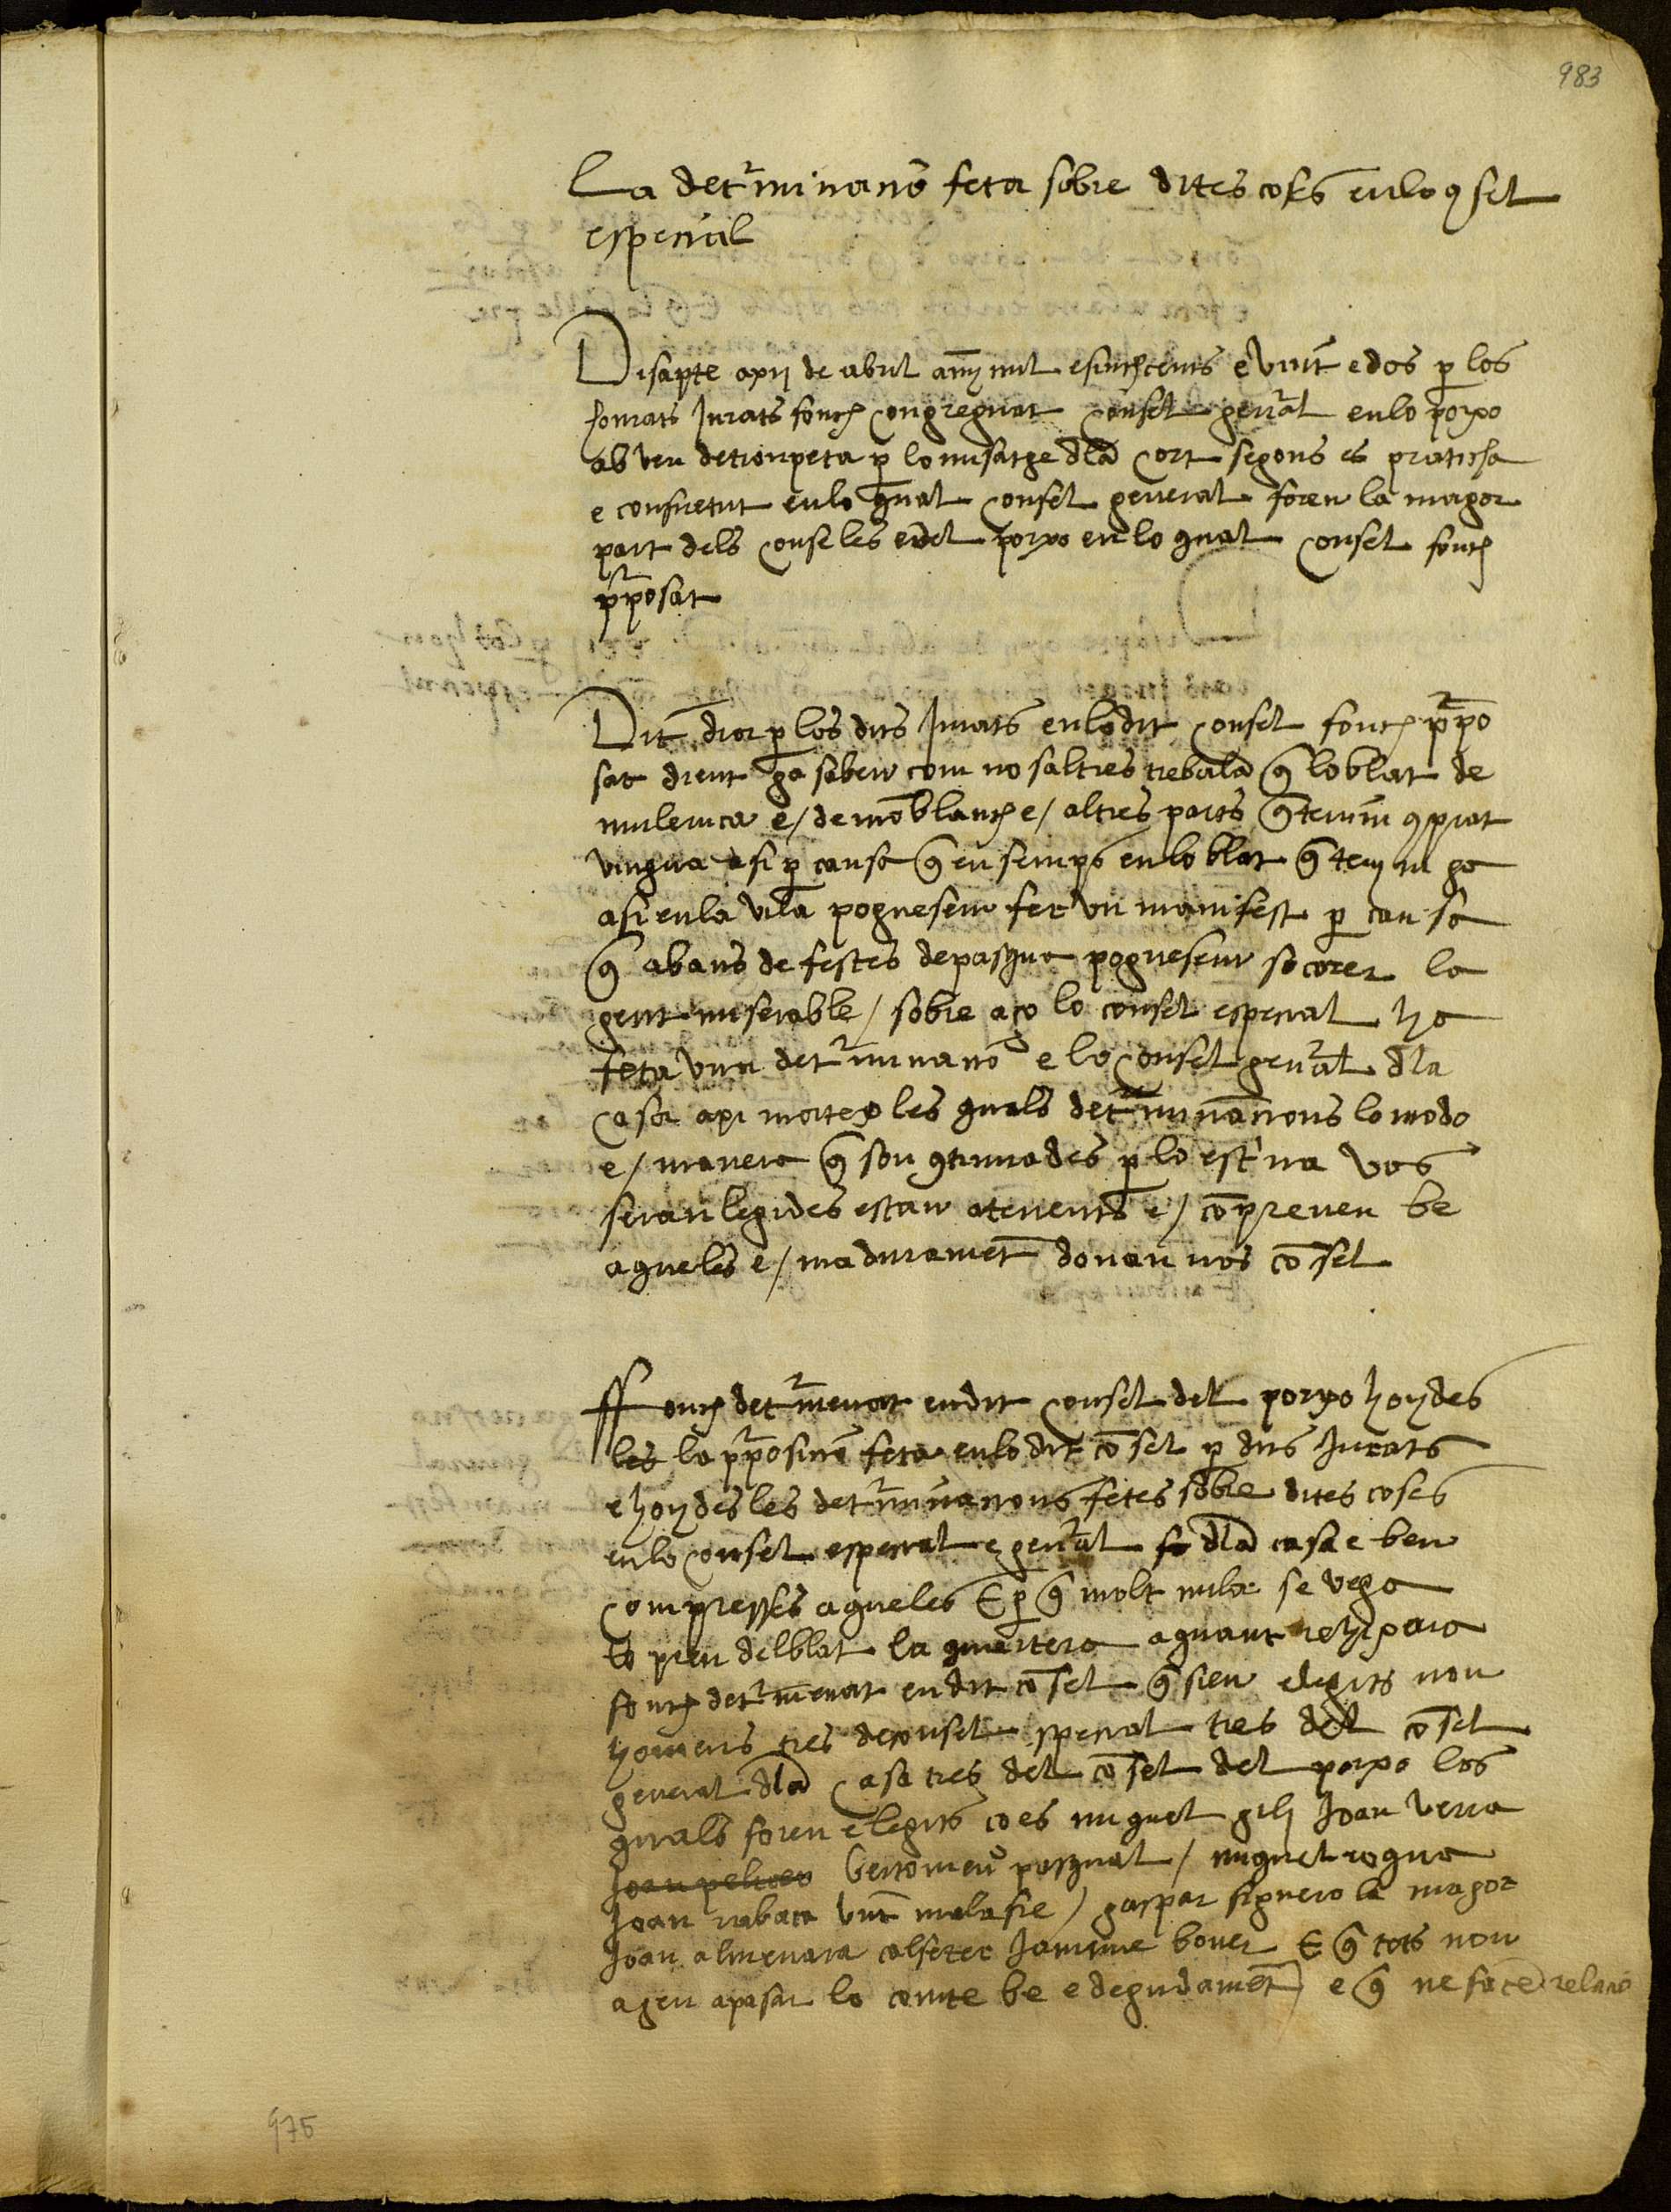 983
La determinatio feta sobre dites coses en lo consel
especial
Disapte a xij de abril any mil e sinchcents e vint e dos per los
honrats Jurats fonch congreguat consel general en lo porxo
ab veu de tronpeta per lo misatge dela cort segons es praticha
e consuetut en lo qual consel general foren la magor
part dels conseles en del porxo en lo qual consel fonch
proposat
Dit dia per los dits Jurats en lo dit consel fonch propo
sat dient ga saben com nosaltres trebalam que lo blat de
mulenca e / de monblanch e / altres parts que tenim conprat
vingua asi per causa que en semps en lo blat que tenim ga
asi en la vila poguesem fer un manifest per causa
que abans de festes de pasqua poguesem socorer la
gent miserable / sobre aço lo consel especial ha
feta una determinatio e lo consel general dela
casa axi mateix les quals determinations lo modo
e / manera que son continuades per lo escriva vos
seran legides estau atenents e / compreneu be
agueles e / madurament donau nos consel
Ffonch determenat en dit consel del porxo hoydes
les la propositio feta en lo dit consel per dits Jurats
e hoydes les determinations fetes sobre dites coses
en lo consel especial e general fe dela casa e ben
compresses agueles E per que molt milor se vega
lo preu del blat la quartera aguant reypara
fonch determenat en dit consel que sien elegits nou
homens tres de consel special tres del consel
general dela casa tres del consel del porxo los
quals foren elegits ço es miguel gili Joan verra
Joan pelicer bertomeu pasqual / miguel rogua
Joan rabaça vint malafre / gaspar figuerola magor
Joan almenara calseter Jaumme bover E que tots nou
agen a pasar lo comte be e degudament e que ne façen relatio
975